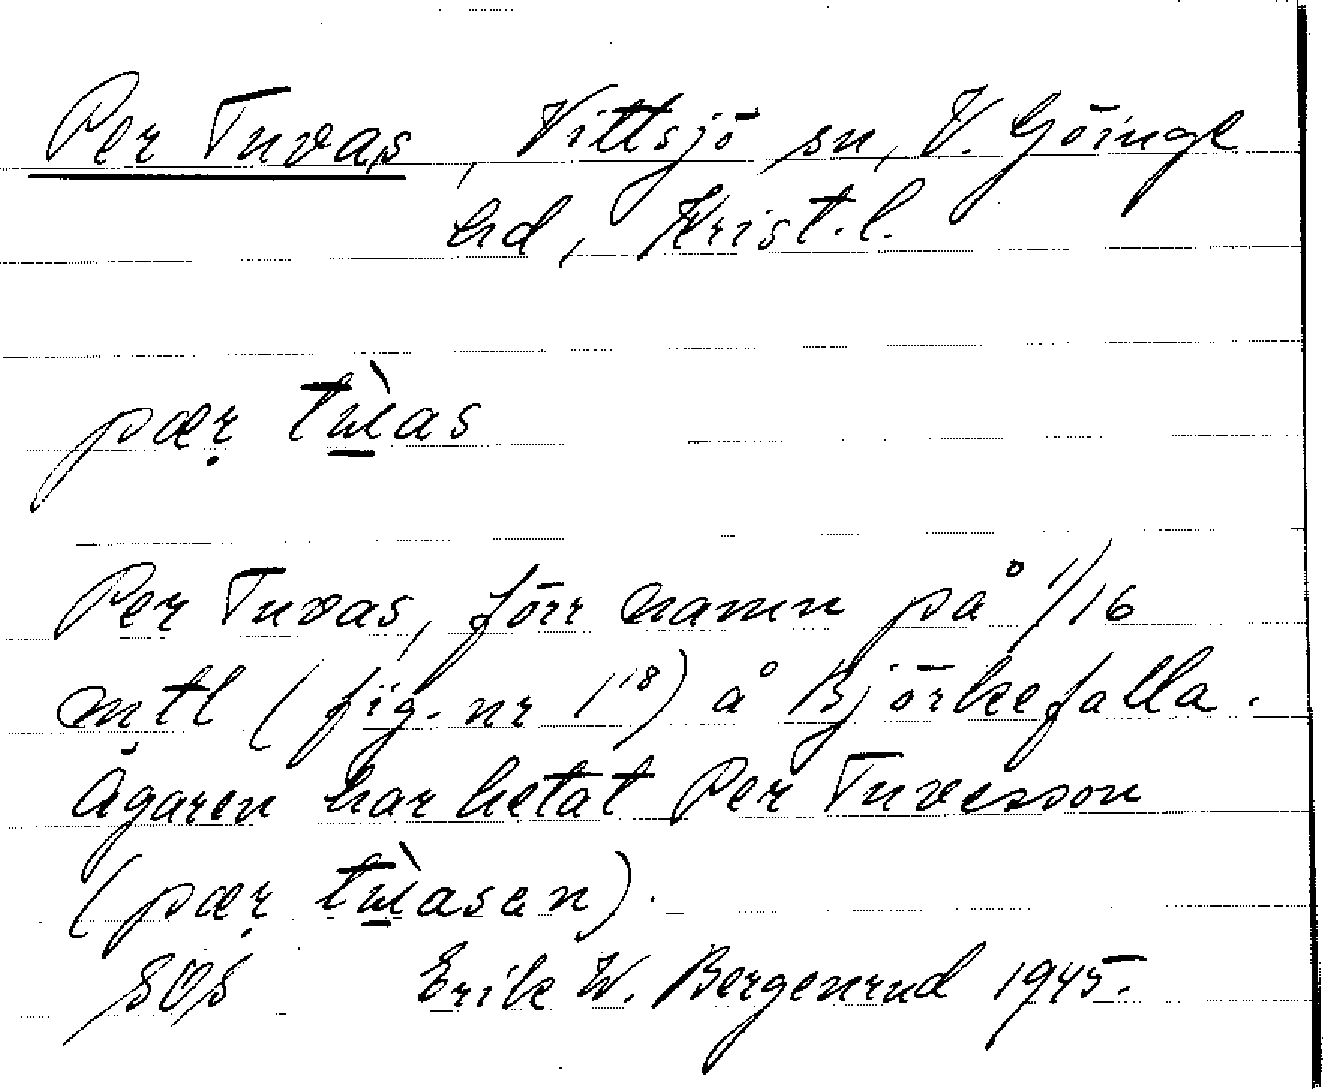 Per Tuvas, Vittsjö sn, V. Göinge
hd, Krist. l.
pær tùas
Per Tuvas, förr namn på 1/16
mtl (fig. nr 1¹⁸) å Björkefalla.
Ägaren har hetat Per Tuvesson
(pær tùasen).
SOS Erik W. Bergenrud 1945.